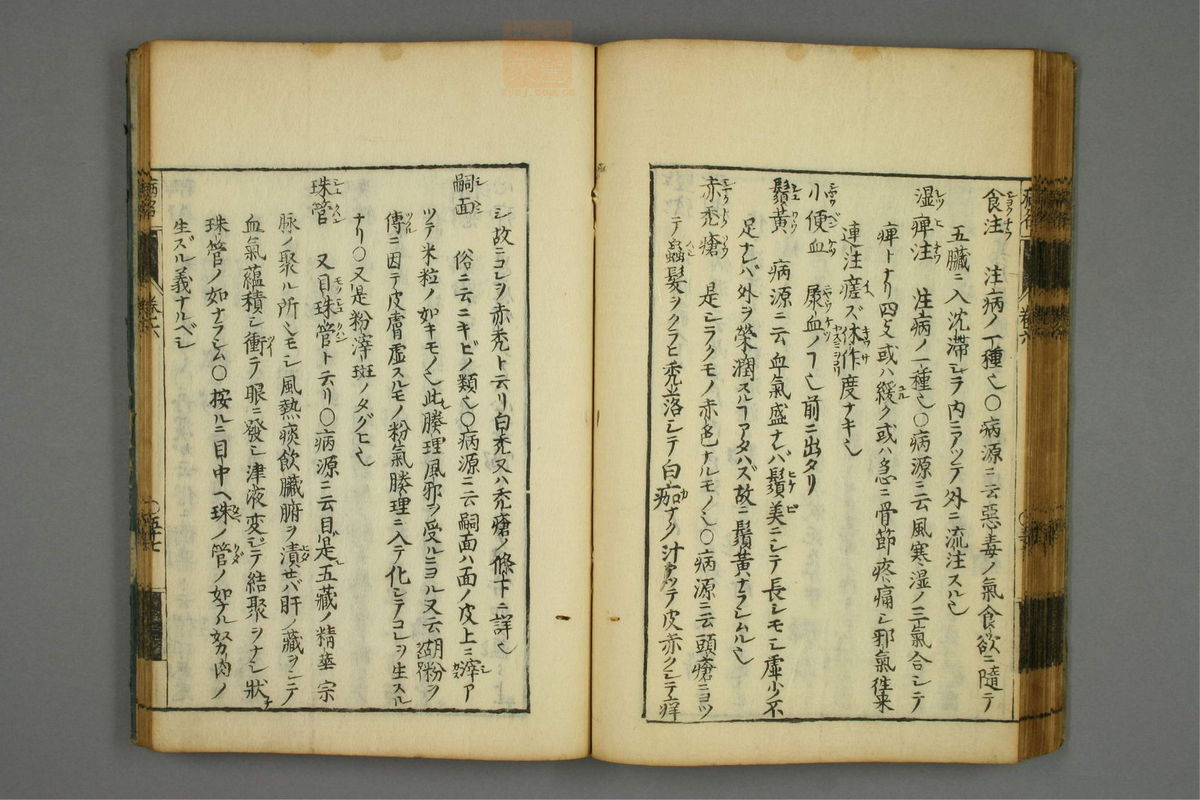 食注 注病ノ一種也〇病源ニ云惡毒ノ氣食飲ニ隨テ
五臓ニ入沈滞シテ内ニアツテ外ニ流注スル也
湿痺注 注病ノ一種也〇病源ニ云風寒湿ノ三氣合シテ
痺トナリ四支或ハ緩ク或ハ急ニ骨節疼痛シ邪氣徃来
連注瘥ズ休作度ナキ也
小便血 尿血ノヿ也前ニ出タリ
鬚黄 病源ニ云血氣盛ナレバ鬚美ニシテ長シモシ虚少不
足ナレバ外ヲ榮潤スルヿアタハズ故ニ鬚黄ナラシムル也
赤禿瘡 是シラクモノ赤色ナルモノ也〇病源ニ云頭瘡ニヨツ
テ蟲髮ヲクラヒ禿落シテ白痂ナク汁アツテ皮赤クシテ痒
シ故ニコレヲ赤禿ト云リ白禿又ハ禿瘡ノ條下ニ詳也
嗣面 俗ニ云ニキビノ類也〇病源ニ云嗣面ハ面ノ皮上ニ滓ア
ツテ米粒ノ如キモノ也此腠理風邪ヲ受ルニヨル又云胡粉ヲ
傅ニ因テ皮膚虚スルモノ粉氣腠理ニ入テ化シテコレヲ生スル
ナリ〇又是粉滓斑ノタグヒ也
珠管 又目珠管ト云リ〇病源ニ云目是五藏ノ精華宗
脉ノ聚ル所也モシ風熱痰飲臓腑ヲ漬セバ肝ノ藏ヲシテ
血氣蘊積シ衝テ眼ニ發シ津液変ジテ結聚ヲナシ状
珠管ノ如ナラシム〇按ルニ目中ヘ珠ノ管ノ如ナル努肉ノ
生ズル義ナルベシ
卷六